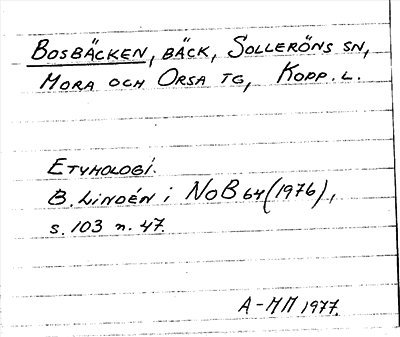 BOSBÄCKEN, BÄCK, SOLLERÖNS SN,
MORA OCH ORSA TG, KOPP. L.
ETYMOLOGI.
B. LINDÉN I NoB 64 (1976),
s. 103 n. 47.
A-MM 1977.